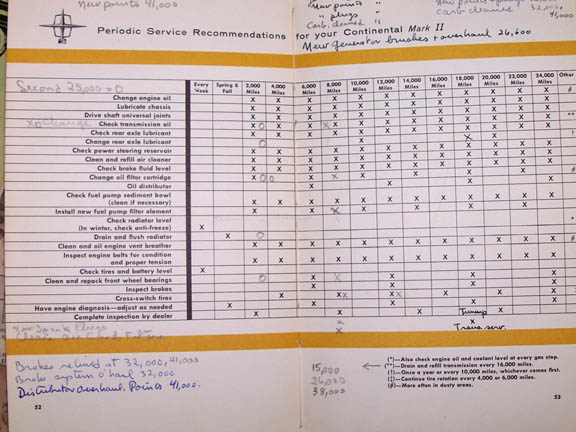 New points 41,000
New points
" plugs
Carb. cleaned
Carb cleaned 32,000
41,000
Periodic Service Recommendations for your Continental Mark II
New generator brushes & overhaul 26,600
Second 25,000 = O
Every Week Spring & Fall 2,000 Miles 4,000 Miles 6,000 Miles 8,000 Miles 10,000 Miles 12,000 Miles 14,000 Miles 16,000 Miles 18,000 Miles 20,000 Miles 22,000 Miles 24,000 Miles Other
Change engine oil
Lubricate chassis
Drive shaft universal joints
Check transmission oil
Check rear axle lubricant
Change rear axle lubricant
Check power steering reservoir
Clean and refill air cleaner
Check brake fluid level
Change oil filter cartridge
Oil distributor
Check fuel pump sediment bowl
(clean if necessary)
Install new fuel pump filter element
Check radiator level
(In winter, check anti-freeze)
Drain and flush radiator
Clean and oil engine vent breather
Inspect engine belts for condition
and proper tension
Check tires and battery level
Clean and repack front wheel bearings
Inspect brakes
Cross-switch tires
Have engine diagnosis—adjust as needed
Complete inspection by dealer
Tuneup
Trans. serv.
New Spark Plugs
Brakes relined at 32,000, 41,000
Brake system o'haul 32,000
Distributor overhaul. Points 41,000.
15,000
26,000
38,000
(*)—Also check engine oil and coolant level at every gas stop.
(**)—Drain and refill transmission every 16,000 miles.
(†)—Once a year or every 10,000 miles, whichever comes first.
(‡)—Continue tire rotation every 4,000 or 6,000 miles.
(∮)—More often in dusty areas.
52
53